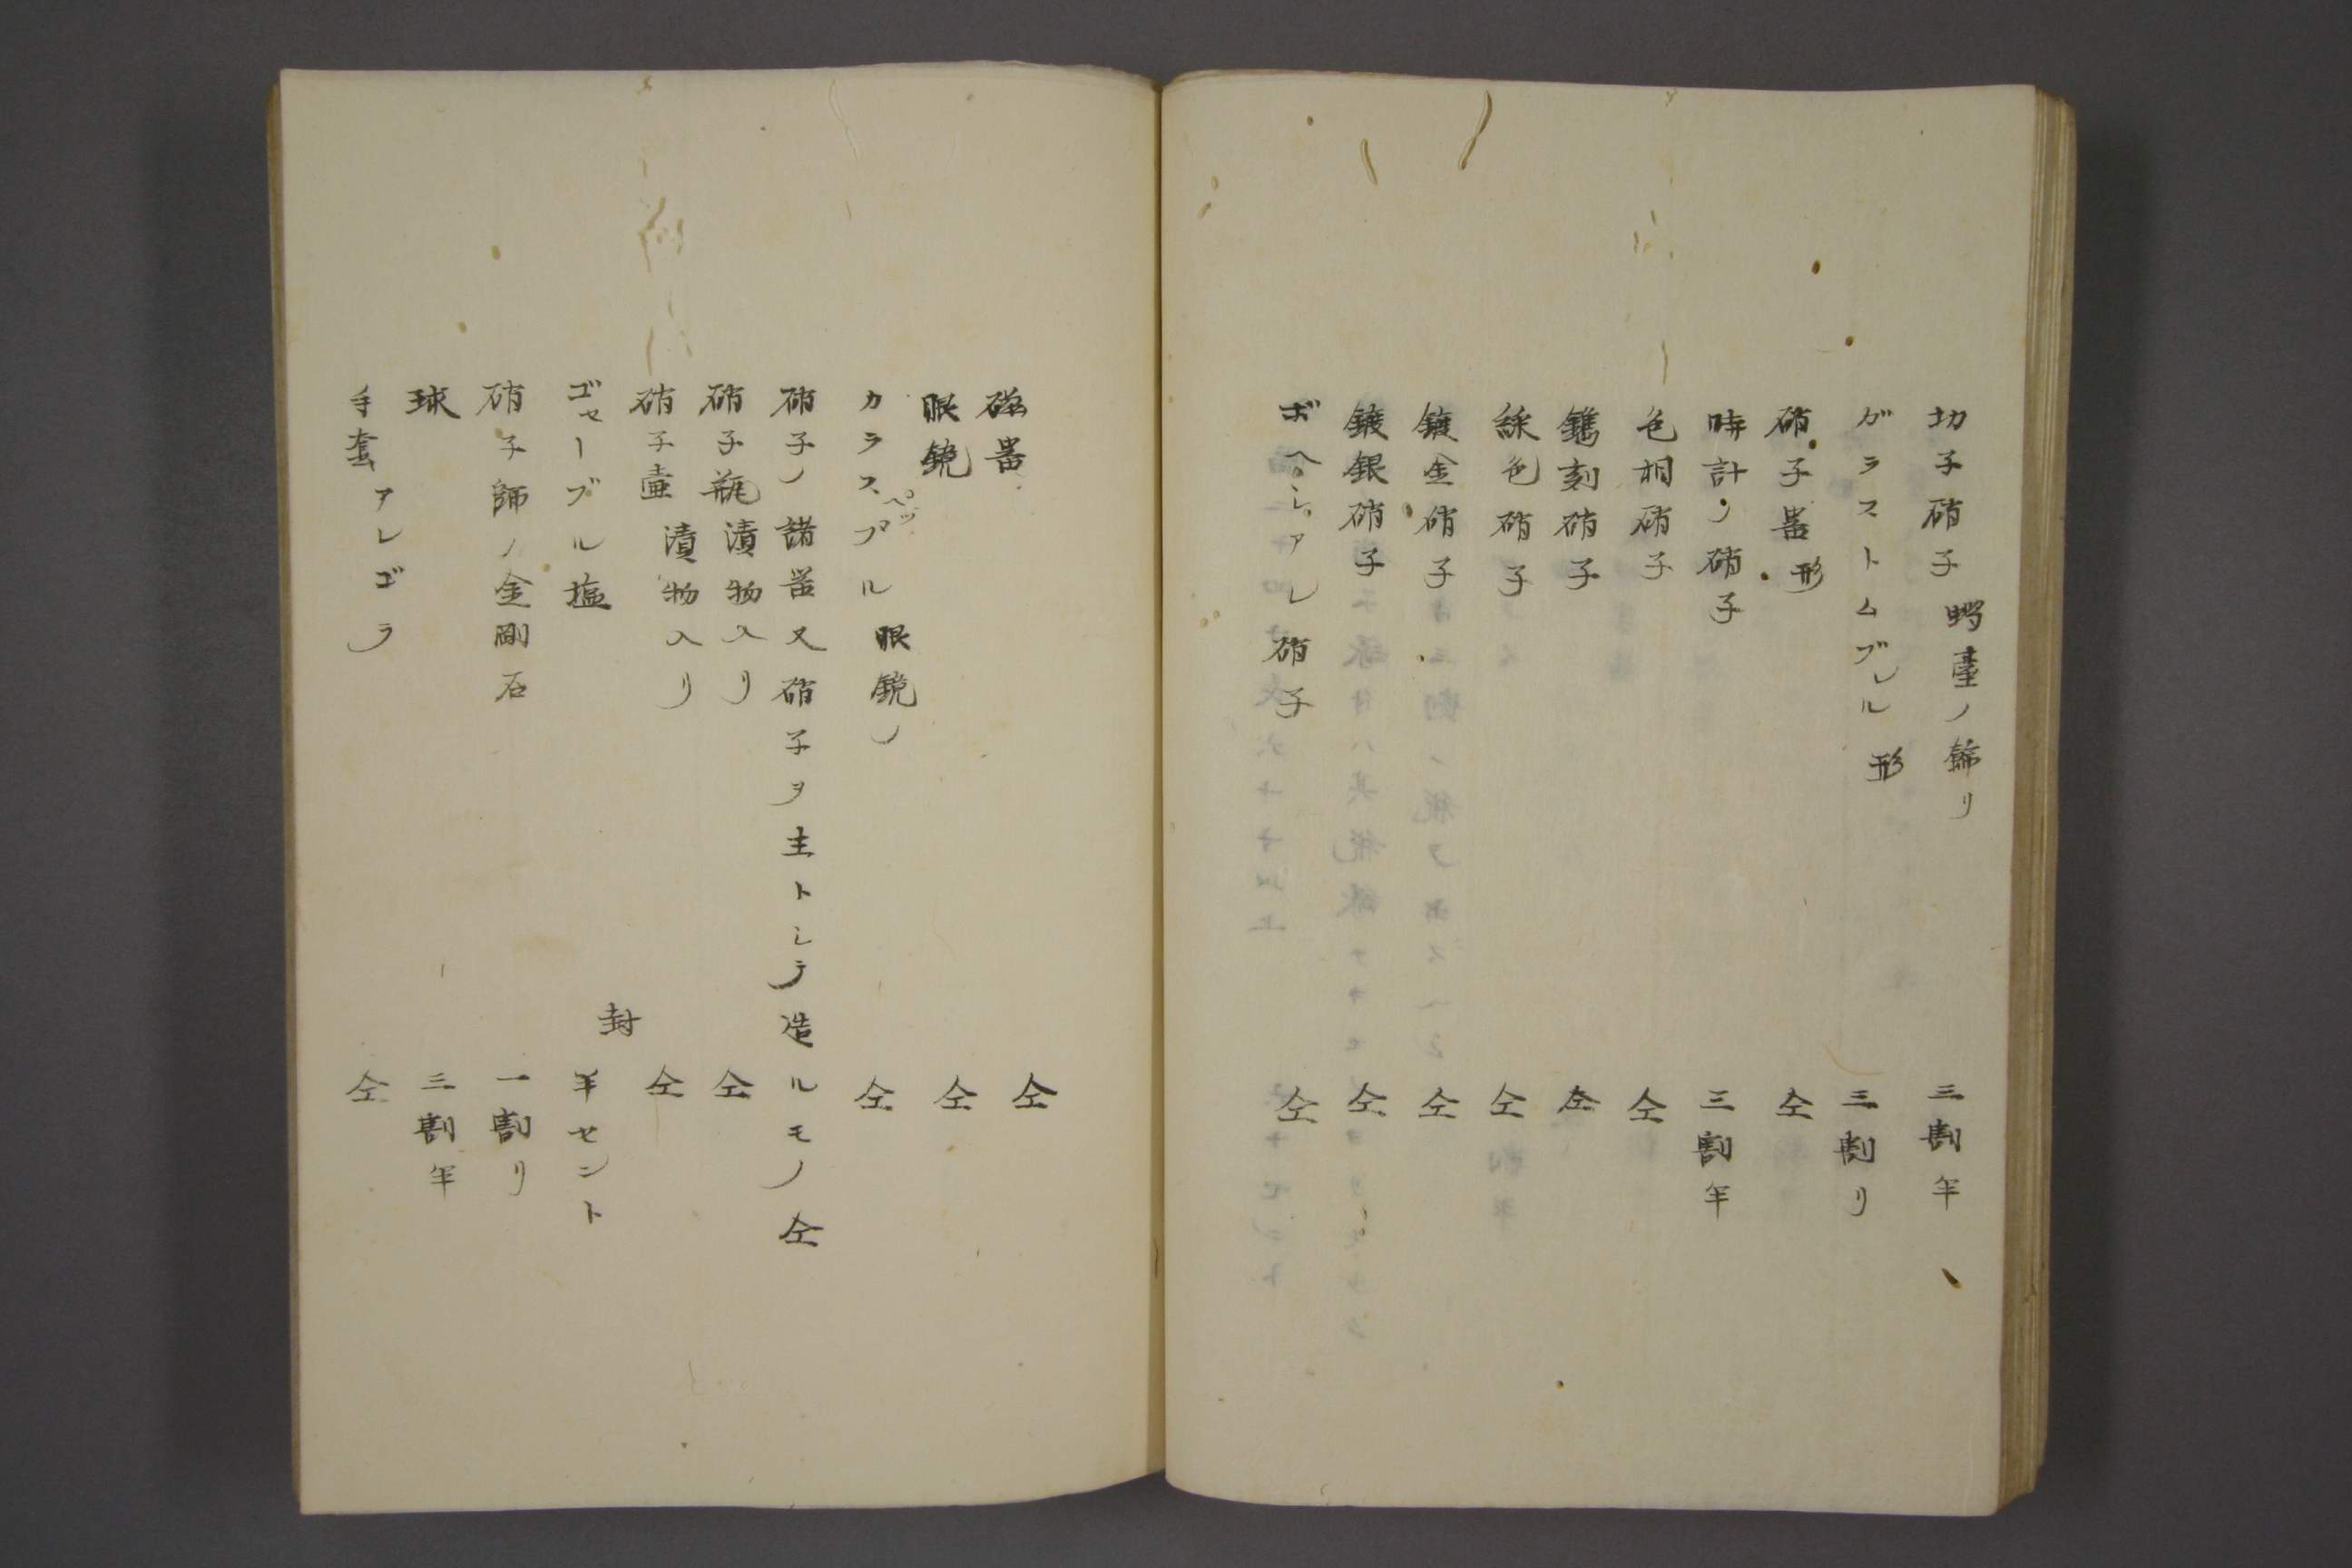 切子硝子 蝋臺ノ錺リ 三割半
ガラストムブレル 形 三割リ
硝子器 形 仝
時計ノ硝子 三割半
色相硝子 仝
鐫刻硝子 仝
綵色硝子 仝
鍍金硝子 仝
鍍銀硝子 仝
ボヘシアレ硝子 仝
磁器 仝
眼鏡 仝
カラスプル 眼鏡ノ 仝
硝子ノ諸器又硝子ヲ主トシテ造ルモノ 仝
硝子瓶 漬物入リ 仝
硝子壷 漬物入リ 仝
ゴセーブル塩 封 半セント
硝子師ノ金剛石 一割リ
球 三割半
手套 アレゴラ 仝